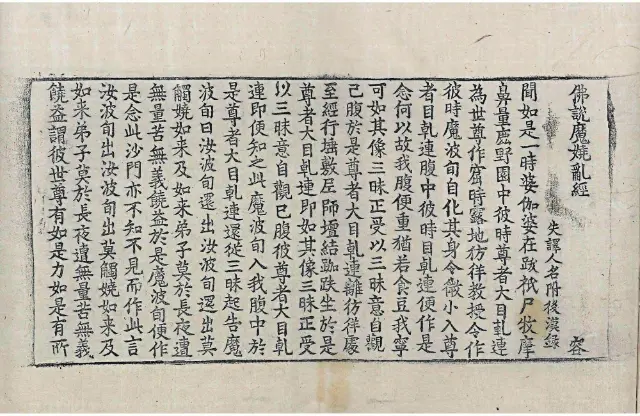 佛說魔嬈亂經
失譯人名附後漢錄 容
聞如是一時婆伽婆在跋祇尸牧摩
鼻量鹿野園中彼時尊者大目乹連
為世尊作窟時露地彷徉教授令作
彼時魔波旬自化其身令微小入尊
者目乹連腹中彼時目乹連便作是
念何以故我腹便重猶若食豆我寧
可如其像三昧正受以三昧意自觀
己腹於是尊者大目乹連離彷徉處
至經行攝敷至師壇結跏趺坐於是
尊者大目乹連即如其像三昧正受
以三昧意自觀己腹彼尊者大目乹
連即便知之此魔波旬入我腹中於
是尊者大目乹連還從三昧起告魔
波旬曰汝波旬還出汝波旬還出莫
觸嬈如来及如来弟子莫於長夜遭
無量苦無義饒益於是魔波旬便作
是念此沙門亦不知不見而作此言
汝波旬出汝波旬出莫觸嬈如来及
如来弟子莫於長夜遭無量苦無義
饒益謂彼世尊有如是力如是有所